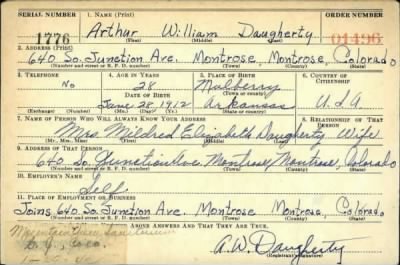 SERIAL NUMBER 1. NAME (Print) ORDER NUMBER
1776 Arthur William Daugherty 01496
(First) (Middle) (Last)
2. ADDRESS (Print)
640 So. Junction Ave. Montrose, Montrose, Colorado
(Number and street or R. F. D. number) (Town) (County) (State)
3. TELEPHONE 4. AGE IN YEARS 5. PLACE OF BIRTH 6. COUNTRY OF CITIZENSHIP
No 28 Mulberry
DATE OF BIRTH (Town or county)
June 28, 1912 Arkansas U.S.A
(Exchange) (Number) (Mo.) (Day) (Yr.) (State or country)
7. NAME OF PERSON WHO WILL ALWAYS KNOW YOUR ADDRESS 8. RELATIONSHIP OF THAT PERSON
Mrs. Mildred Elizabeth Daugherty Wife
(Mr., Mrs., Miss) (First) (Middle) (Last)
9. ADDRESS OF THAT PERSON
640 So. Junction Ave. Montrose, Montrose, Colorado
(Number and street or R. F. D. number) (Town) (County) (State)
10. EMPLOYER'S NAME
Self
11. PLACE OF EMPLOYMENT OR BUSINESS
Joins 640 So. Junction Ave. Montrose Montrose, Colorado
(Number and street or R. F. D. number) (Town) (County) (State)
ABOVE ANSWERS AND THAT THEY ARE TRUE.
Colo.
A.W. Daugherty
(Registrant's signature)